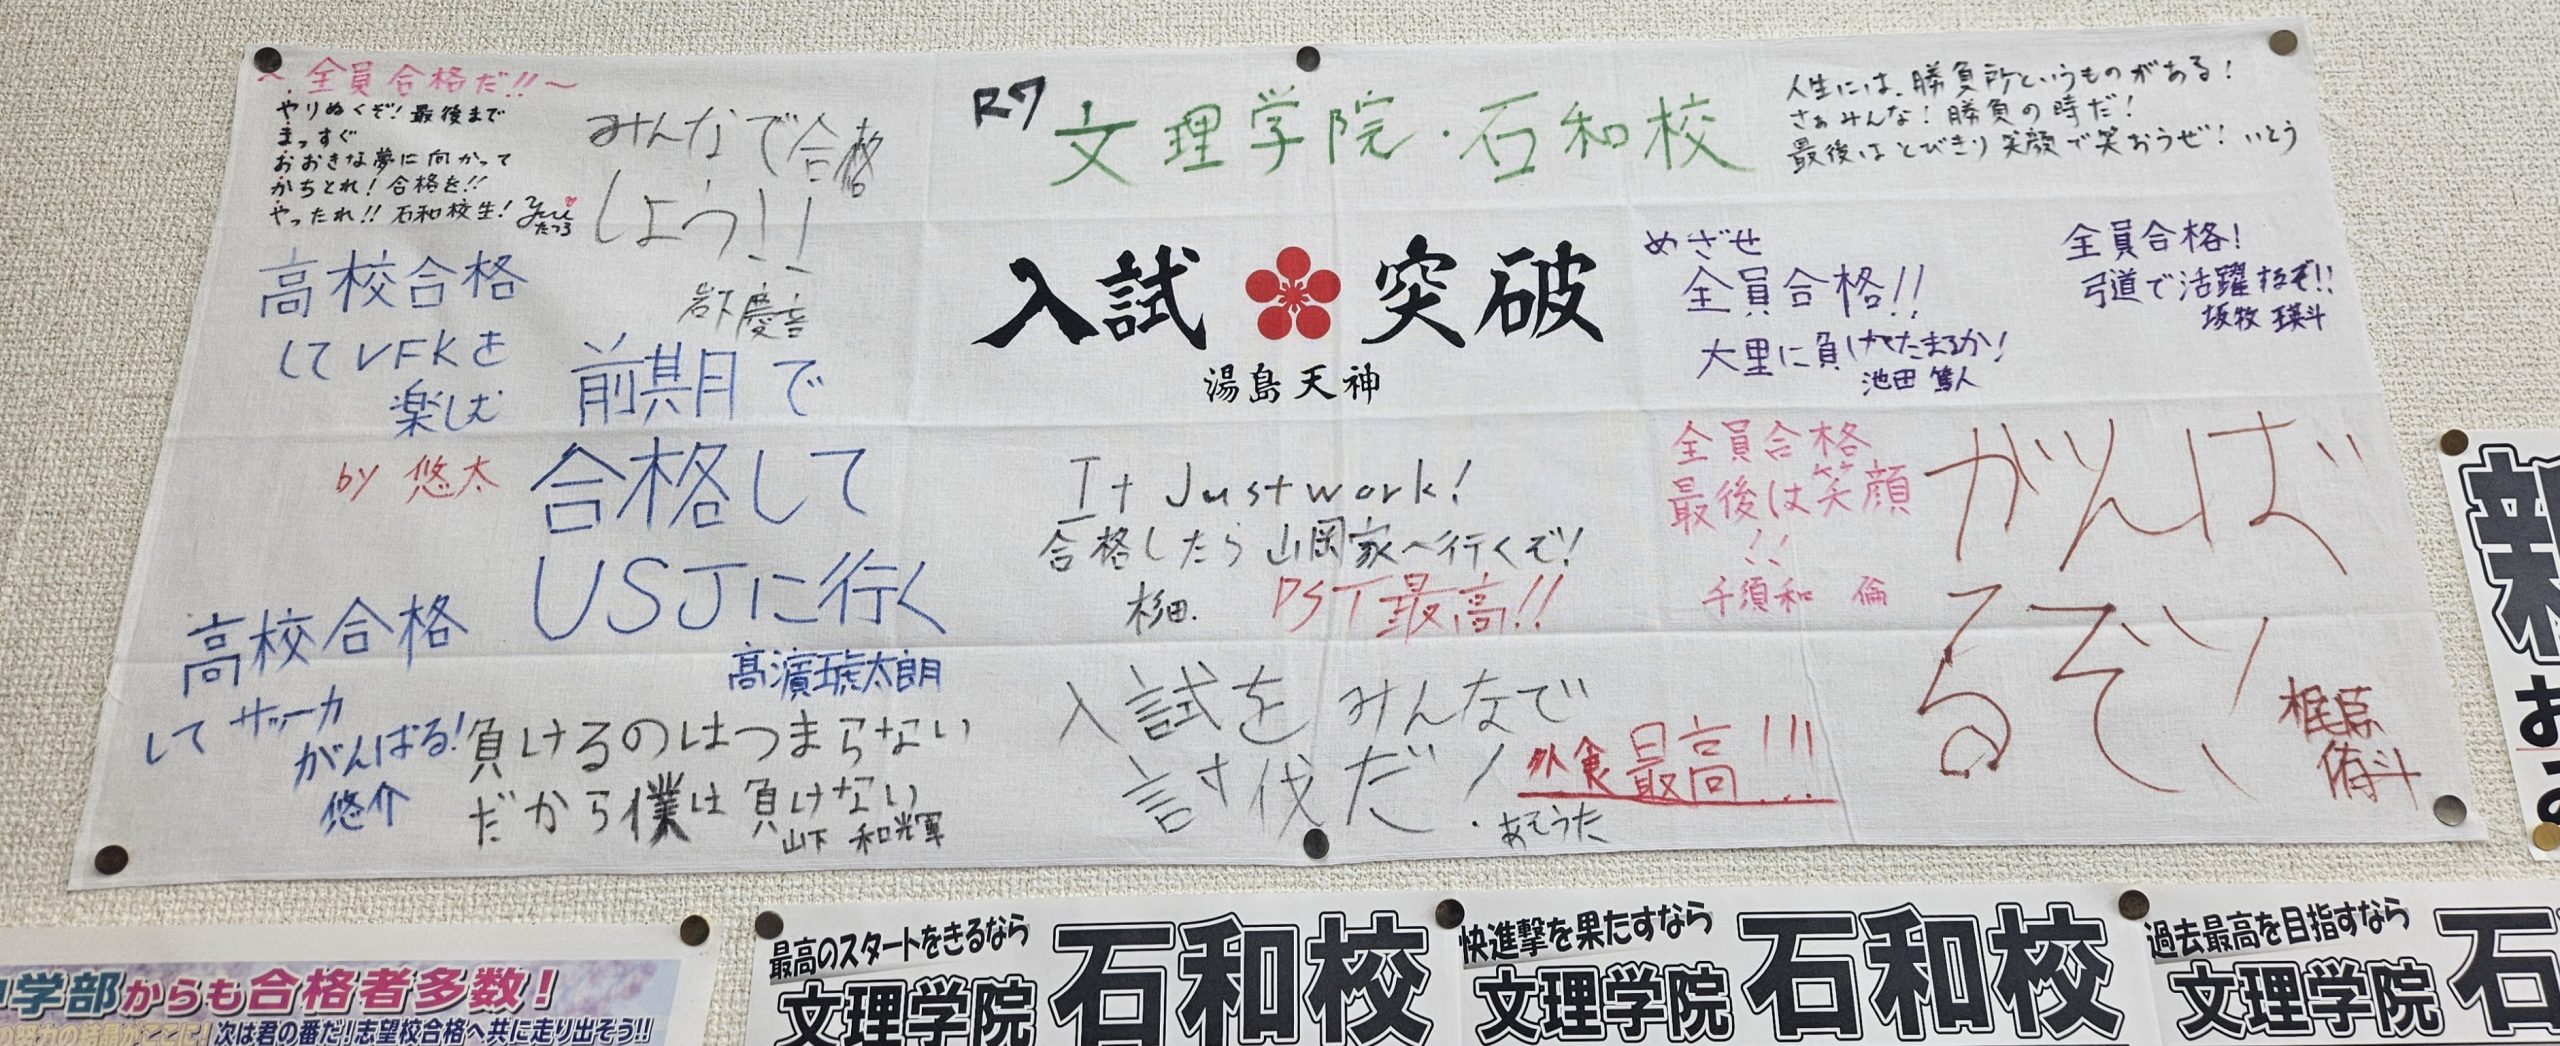 ～全員合格だ!!～
やりぬくぞ!最後まで
まっすぐ
おおきな夢に向かって
かちとれ!合格を!!
やったれ!!石和校生!
たつろ
みんなで合格
しよう!!
岩下慶音
R7
文理学院・石和校
入試突破
湯島天神
人生には、勝負所というものがある!
さぁみんな!勝負の時だ!
最後はとびきり笑顔で笑おうぜ!いとう
めざせ
全員合格!!
大里に負けてたまるか!
池田 篤人
全員合格!
弓道で活躍するぞ!!
坂牧 瑛斗
高校合格
してVFKを
楽しむ
by 悠太
前期で
合格して
USJに行く
髙濵琥太朗
It Just work!
合格したら山岡家へ行くぞ!
杉田.
PST最高!!
全員合格
最後は笑顔
!!
千須和 倫
がんば
るぞ!
梶原
侑斗
高校合格
して サッカー
がんばる!
悠介
負けるのはつまらない
だから僕は負けない
山下 和輝
入試をみんなで
討伐だ!
外食最高!!!
学部からも合格者多数!
次は君の番だ!志望校合格へ共に走り出そう!!
最高のスタートをきるなら
文理学院 石和校
快進撃を果たすなら
文理学院 石和校
過去最高を目指すなら
文理学院 石